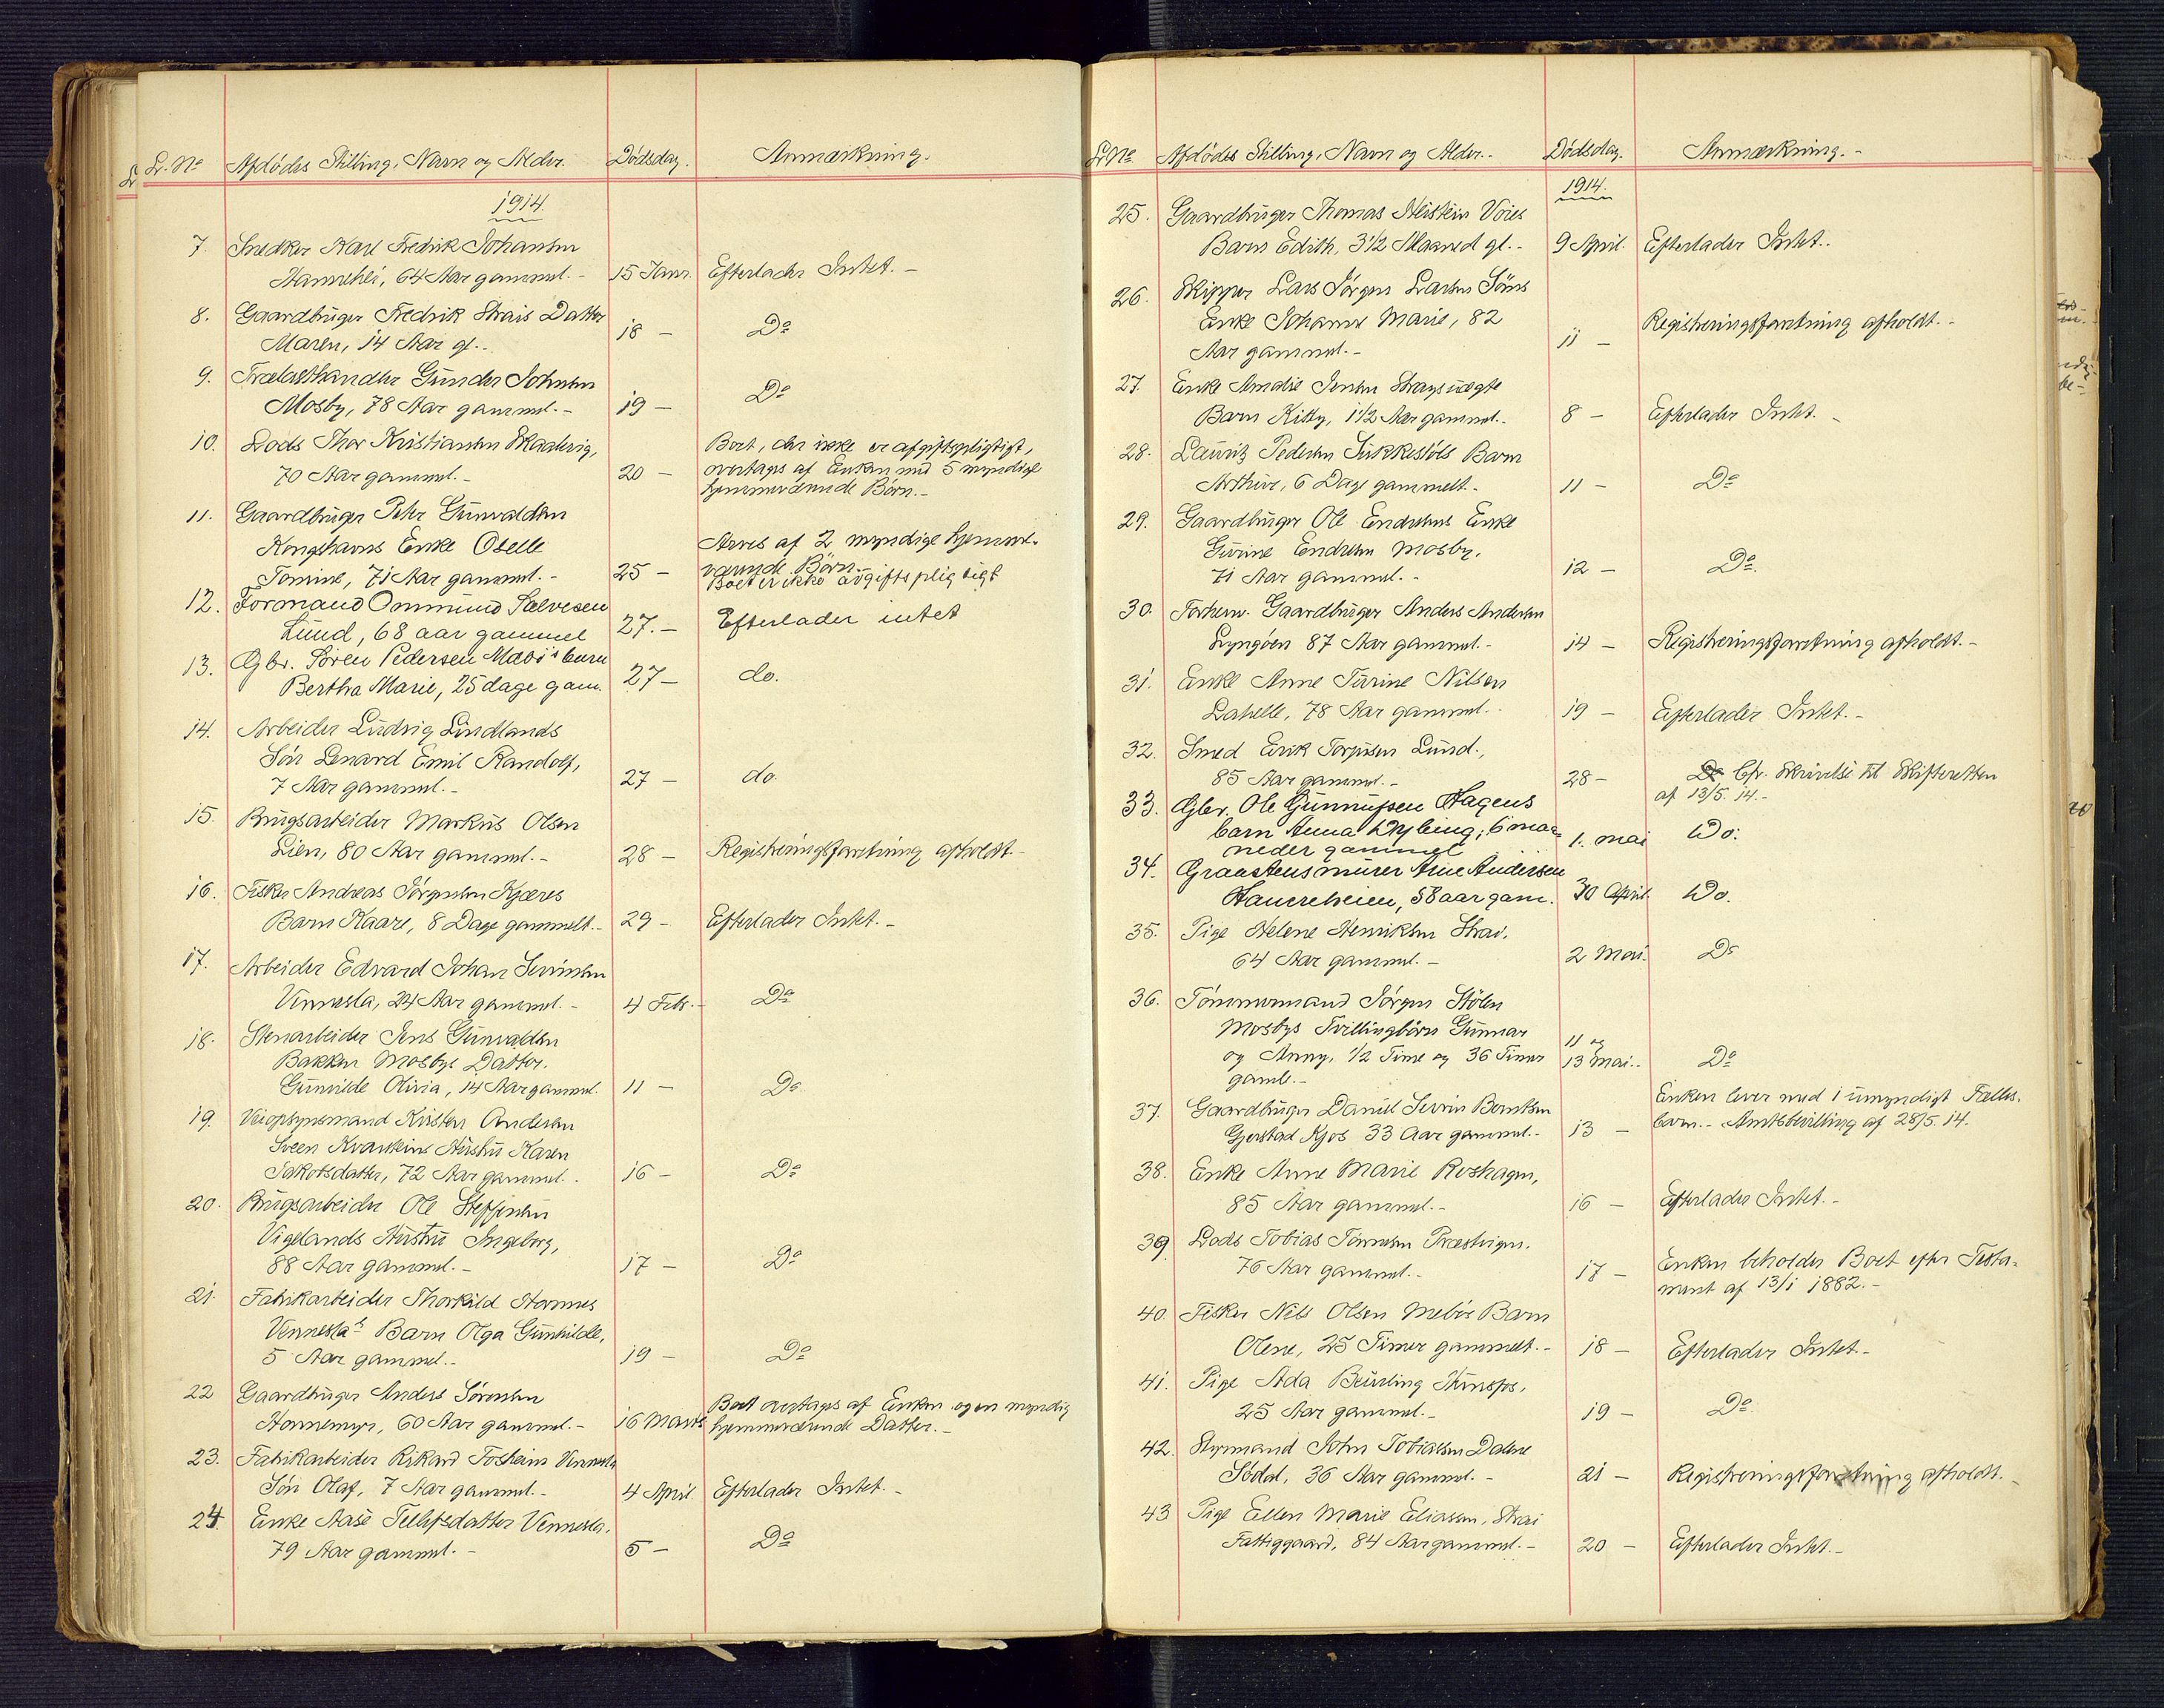 L. No Afdødes Stilling, Navn og Alder. Dødsdag. Anmærkning.
1914.
7. Snedker Karl Fredrik Johansen
64 Aar gammel.- 15 Janr. Efterlader Intet.-
8. Gaardbruger Fredrik Strais Datter
Maren, 14 Aar gl.- 18 - Do
9. Trælasthandler Gunder Johnsen
Mosby, 78 Aar gammel.- 19 - Do
10. Lods Thor Kristiansen
70 Aar gammel.- 20 -
Boet, der ikke er afgiftspligtigt,
overtages af Enken med 5 myndige
hjemmeværende Børn.-
11. Gaardbruger Peter Gunvaldsen
Kongshavns Enke Oselle
Tomine, 71 Aar gammel.- 25 -
Arves af 2 myndige hjemme-
værende Børn.
Boet er ikke avgiftspligtigt
12. Formand Ommund Salvesen
Lund, 68 aar gammel 27.- Efterlader intet
13. Gbr. Søren Pedersen Mæbøs barn
Bertha Marie, 25 dage gam. 27- do.
14. Arbeider Ludvig Lindlands
Søn Lenard Emil Randolf,
7 Aar gammel.- 27 - do.
15. Brugsarbeider Markus Olsen
Lien, 80 Aar gammel.- 28 - Registreringsforretning afholdt.-
16. Fisker Andreas Jørgensen Kjæres
Barn Kaare, 8 Dage gammelt.- 29 - Efterlader Intet.-
17. Arbeider Edvard Johan Severinsen
Vennesla, 24 Aar gammel.- 4 Febr.- Do
18. Stenarbeider Jens Gunvaldsen
Bakken Mosbys Datter.
Gunvilde Olivia, 14 Aar gammel. 11 - Do
19. Veiopsynsmand Kristen Andersen
Sveen Kvarsteins Hustru Karen
Jakobsdatter, 72 Aar gammel. 16 - Do
20. Brugsarbeider Ole Steffensen
Vigelands Hustru Ingeborg,
88 Aar gammel.- 17 - Do
21. Fabrikarbeider Thorkild
Venneslas Barn Olga Gunhilde,
5 Aar gammel.- 19 - Do
22 Gaardbruger Anders Sørensen
Honnemyr, 60 Aar gammel.- 16 Marts
Boet overtages af Enken og en myndig
hjemmeværende Datter.-
23. Fabrikarbeider Rikard Toskeim Vennesla
Søn Olaf, 7 Aar gammel.- 4 April Efterlader Intet.-
24. Enke Aase Tellefsdatter Vennesla.
79 Aar gammel.- 5 - Do
L. No Afdødes Stilling, Navn og Alder.- Dødsdag. Anmærkning.-
1914.
25. Gaardbruger Thomas Heistein Voies
Barn Edith, 3 1/2 Maaned gl.- 9 April. Efterlader Intet.-
26. Skipper Lars Jørgen Larsen
Enke Johanne Marie, 82
Aar gammel.- 11 - Registreringsforretning afholdt.-
27. Enke Amalie Jensen
Barn Kitty, 1 1/2 Aar gammel.- 8 - Efterlader Intet.-
28. Lauritz Pedersen Barn
Arthur, 6 Dage gammelt.- 11 - Do
29. Gaardbruger Ole Endresens Enke
Gurine Endresen Mosby.
71 Aar gammel.- 12 - Do.
30. Forhenv. Gaardbruger Anders Andersen
Lyngøen 87 Aar gammel.- 14 - Registreringsforretning afholdt.-
31. Enke Anne Turine Nilsen
78 Aar gammel.- 19 - Efterlader Intet.-
32. Smed Erik Torjusen Lund.,
85 Aar gammel.- 28 - Do Cfr. Skrivelse til Skifteretten
af 13/5. 14.-
33. Gbr. Ole Gunnufsen Hagens
barn Anna 6 maa-
neder gammel 1. mai Do.
34. Graastensmurer Arne Andersen
Hamreheien, 58 aar gam. 30 April. Do.
35. Pige Helene Henriksen Strai.
64 Aar gammel.- 2 Mai. Do
36. Tømmermand Jørgen Stølen
Mosbys Tvillingbørn Gunnar
og Anny, 1/2 Time og 36 Timer
gamle.- 11 og 13 Mai.. Do
37. Gaardbruger Daniel Severin Berntsen
Gjerstad Kjos 33 Aar gammel.- 13 -
Enken lever med 1 umyndigt Fælles-
barn.- Amtsbevilling af 28/5. 14.
38. Enke Anne Marie Roshagen,
85 Aar gammel.- 16 - Efterlader Intet.-
39. Lods Tobias Tønnesen
76 Aar gammel.- 17 -
Enken beholder Boet efter Testa-
ment af 13/1 1882.-
40. Fisker Nils Olsen Mebøs Barn
Olene, 25 Timer gammelt.- 18 - Efterlader Intet-
41. Pige Ada Beurling Hunsfos,
25 Aar gammel.- 19 - Do.
42. Styrmand John Tobiassen Dalene
Sødal, 36 Aar gammel.- 21 - Registreringsforretning afholdt.-
43 Pige Ellen Marie Eliassen, Strai
Fattiggaard, 84 Aar gammel.- 20 - Efterlader Intet.-